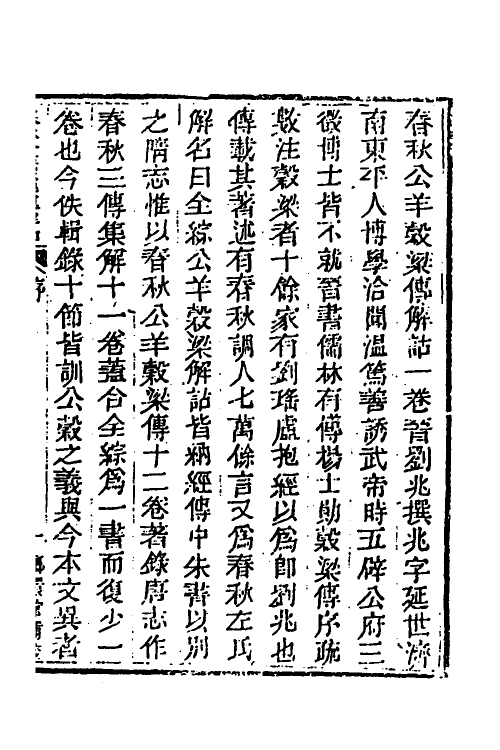 春秋公羊穀梁傳解詁一卷晉劉兆撰兆字延世濟
南東平人博學洽聞溫篤善誘武帝時五辟公府三
徵博士皆不就晉書儒林有傳楊士勛穀梁傳序疏
數注穀梁者十餘家有劉瑤虛抱經以爲即劉兆也
傳載其著述有春秋調人七萬餘言又爲春秋左氏
解名曰全綜公羊穀梁解詁皆納經傳中朱書以別
之隋志惟以春秋公羊穀梁傳十二卷著錄唐志作
春秋三傳集解十一卷蓋合全綜爲一書而復少一
卷也今佚輯錄十節皆訓公穀之義與今本文異者
序
一